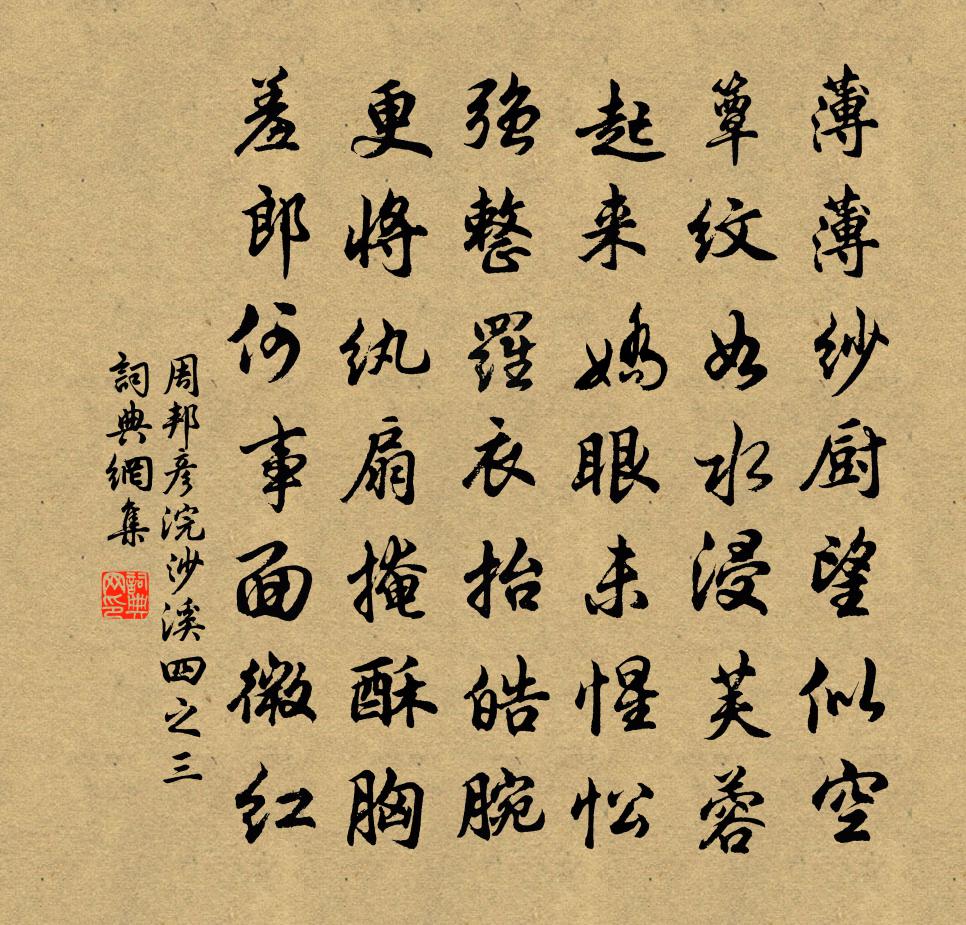 薄薄纱厨望似空
簟纹如水浸芙蓉
起来娇眼未惺忪
强整罗衣抬皓腕
更将纨扇掩酥胸
羞郎何事面微红
周邦彦浣沙溪四之三
词典网集
词典网印